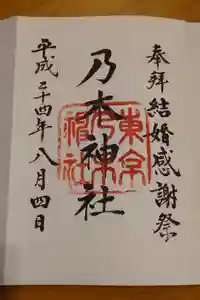 奉拝結婚感謝祭
乃木神社
東京乃木神社
平成二十四年八月四日